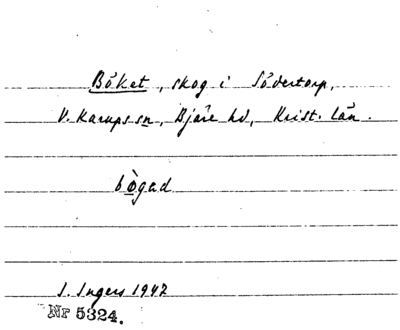 Böket, skog i Södertorp,
V. Karups sn, Bjäre hd, Krist. län.
bøgad
I. Ingers 1942
Nr 5324.